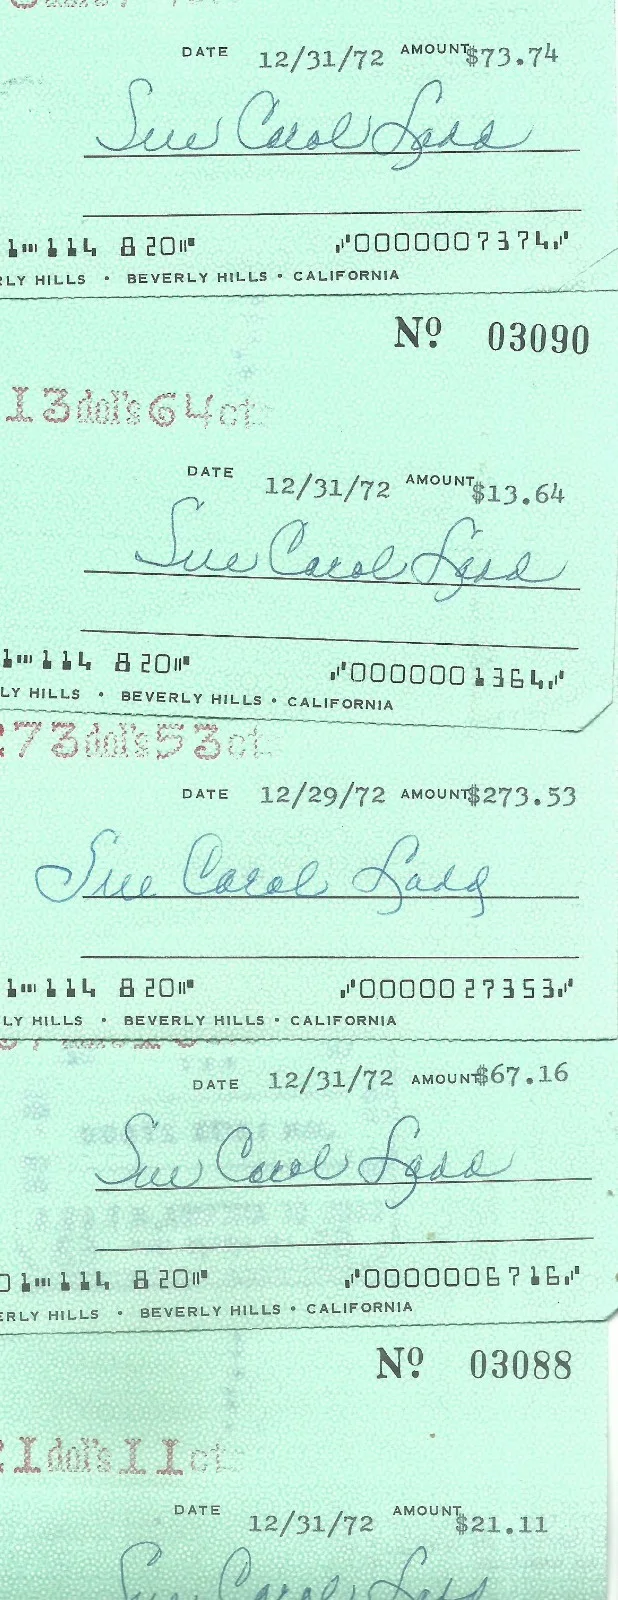 DATE 12/31/72 AMOUNT $73.74
Sue Carol Ladd
114 820 0000007374
RLY HILLS • BEVERLY HILLS • CALIFORNIA
Nº 03090
13dol's64cts
DATE 12/31/72 AMOUNT $13.64
Sue Carol Ladd
114 820 0000001364
LY HILLS • BEVERLY HILLS • CALIFORNIA
273dol's53cts
DATE 12/29/72 AMOUNT $273.53
Sue Carol Ladd
114 820 0000027353
LY HILLS • BEVERLY HILLS • CALIFORNIA
DATE 12/31/72 AMOUNT $67.16
Sue Carol Ladd
01 114 820 0000006716
ERLY HILLS • BEVERLY HILLS • CALIFORNIA
Nº 03088
21dol's11cts
DATE 12/31/72 AMOUNT $21.11
Sue Carol Ladd